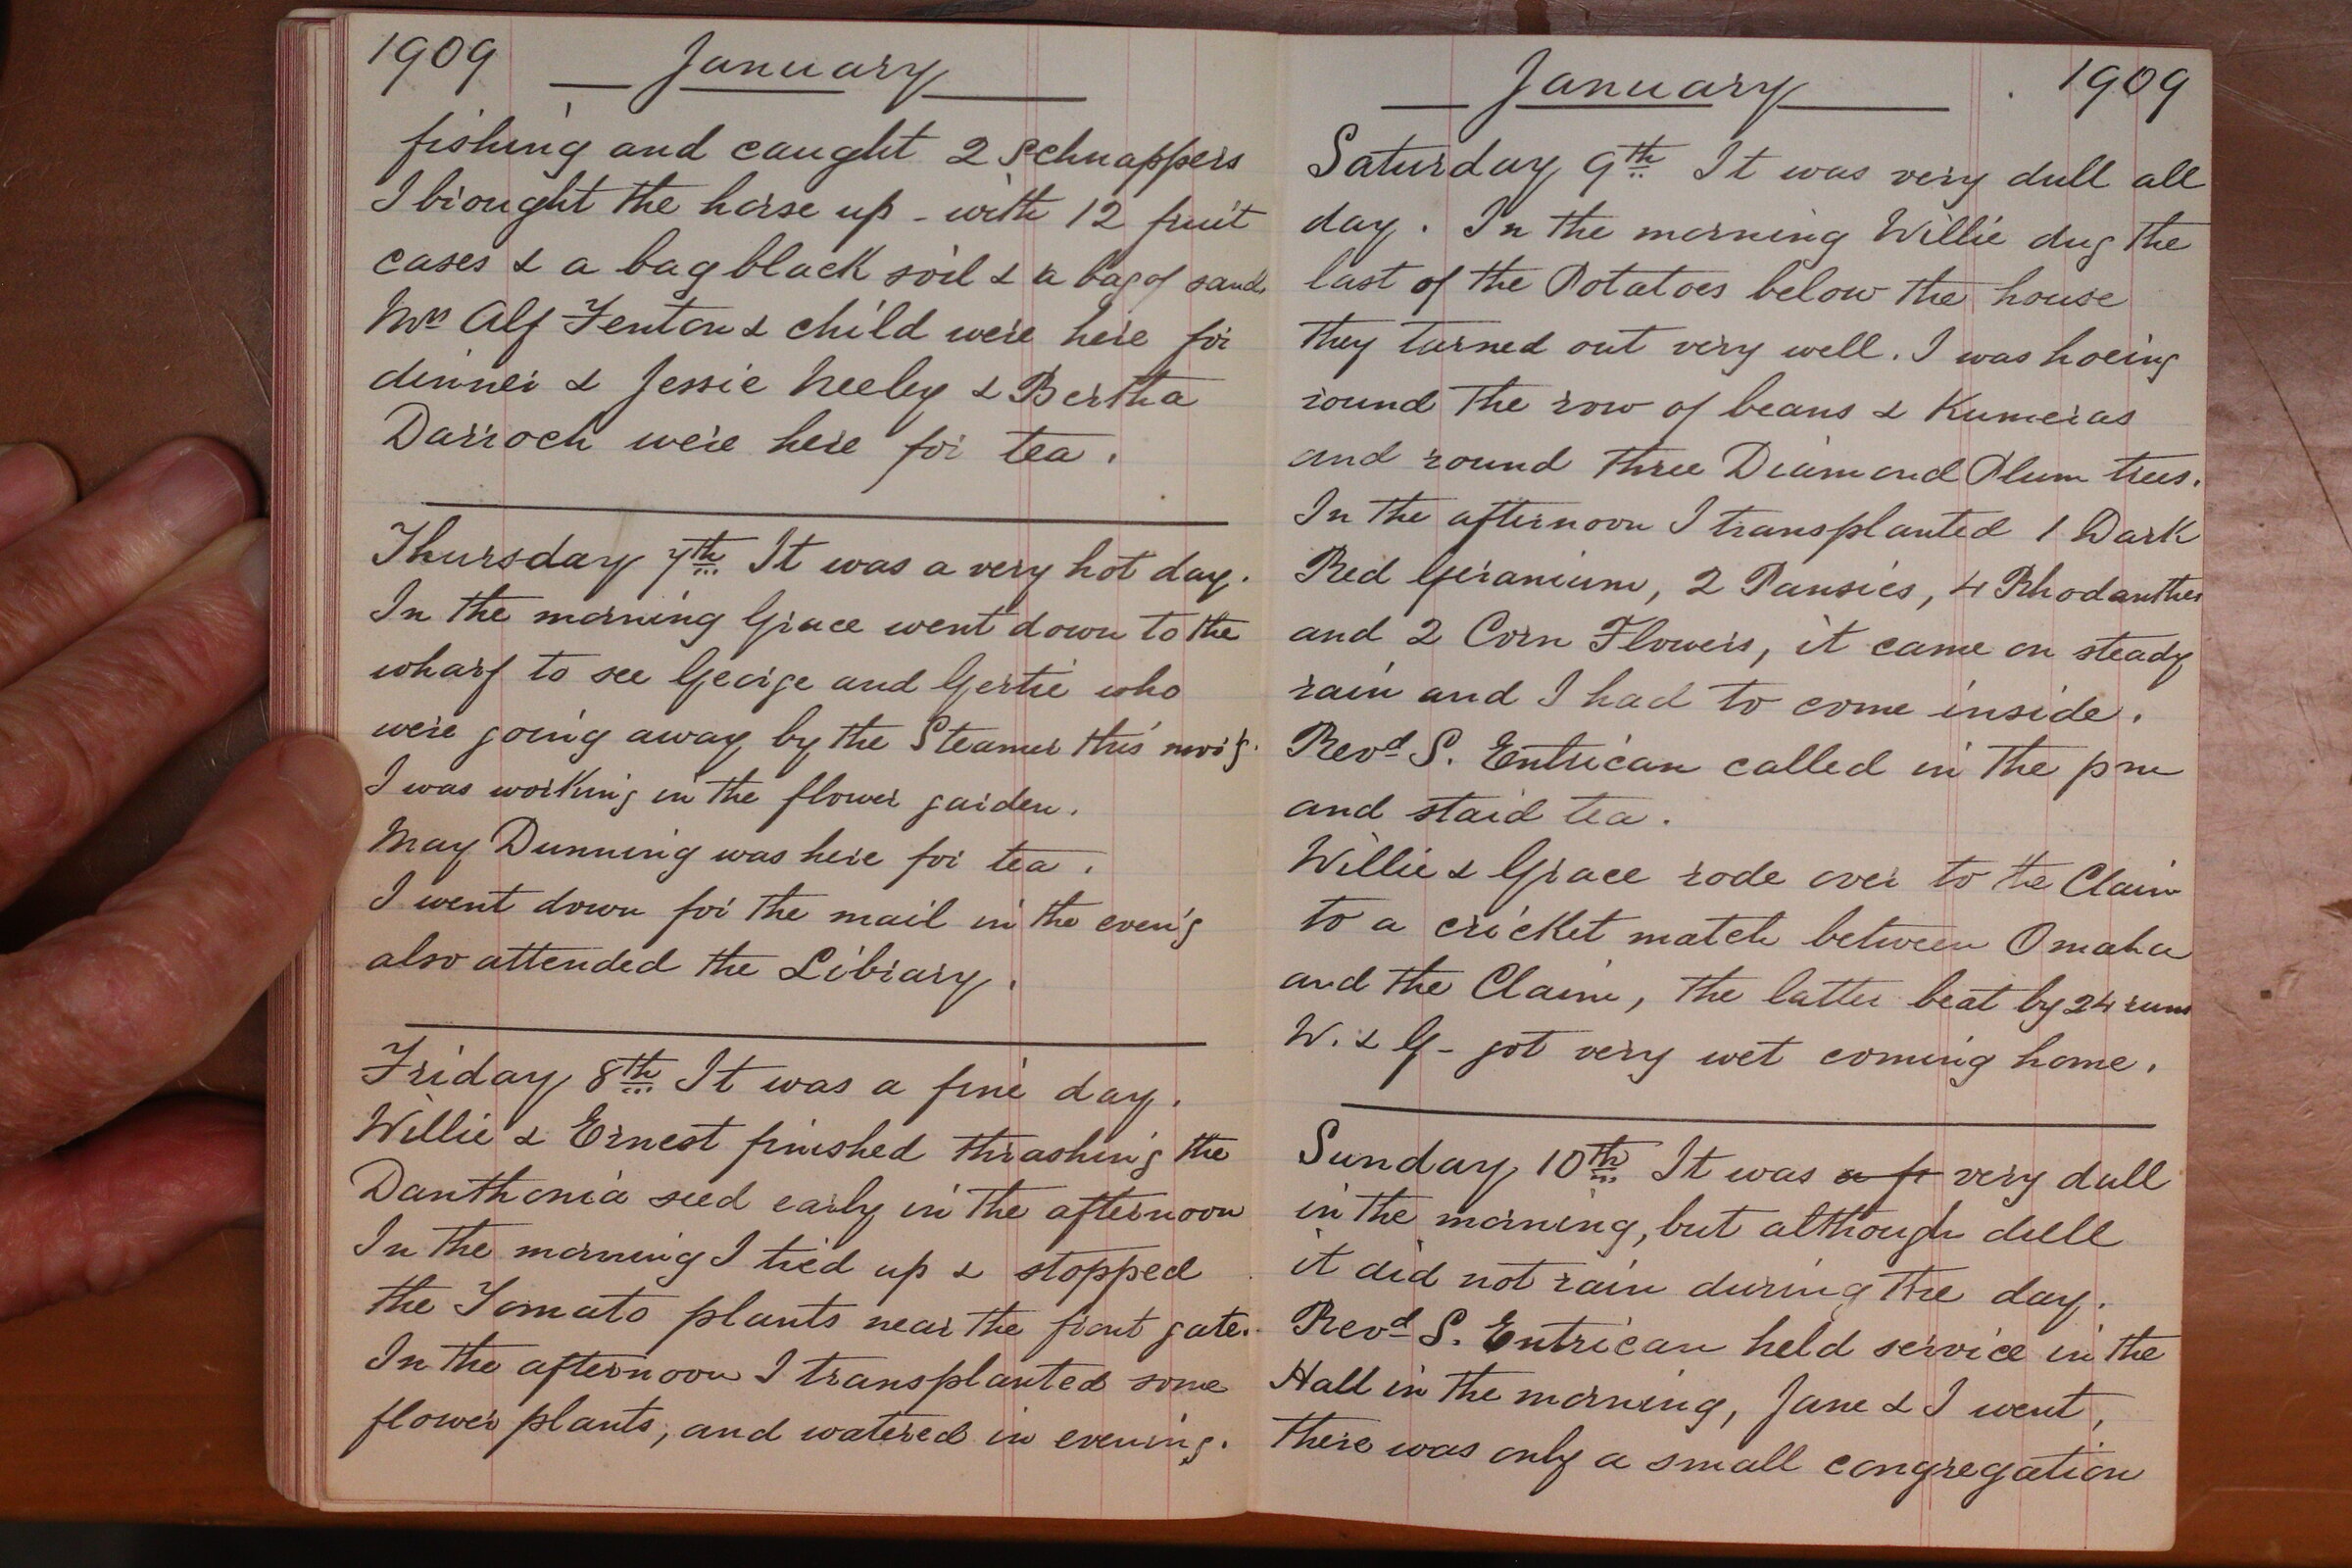 1909 January
fishing and caught 2 Schnappers
I brought the horse up - with 12 fruit
cases & a bag black soil & a bag of sand.
Mrs Alf Fenton & child were here for
dinner & Jessie Neeley & Bertha
Darroch were here for tea.
Thursday 7th It was a very hot day.
In the morning Grace went down to the
wharf to see George and Gertie who
were going away by the Steamer this morg.
I was working in the flower garden.
May Dunning was here for tea.
I went down for the mail in the even'g
also attended the Library.
Friday 8th It was a fine day.
Willie & Ernest finished thrashing the
Danthonia seed early in the afternoon
In the morning I tied up & stopped
the Tomato plants near the front gate.
In the afternoon I transplanted some
flower plants, and watered in evening.
January 1909
Saturday 9th It was very dull all
day. In the morning Willie dug the
last of the Potatoes below the house
they turned out very well. I was hoeing
round the row of beans & Kumeras
and round three Diamond Plum trees.
In the afternoon I transplanted 1 Dark
Red Geranium, 2 Pansies, 4 Rhodanthes
and 2 Corn Flowers, it came on steady
rain and I had to come inside.
Revd S. Entrican called in the pm
and staid tea.
Willie & Grace rode over to the Claim
to a cricket match between Omaha
and the Claim, the latter beat by 24 runs
W. & G - got very wet coming home.
Sunday 10th It was a fi very dull
in the morning, but although dull
it did not rain during the day.
Revd S. Entrican held service in the
Hall in the morning, Jane & I went,
there was only a small congregation